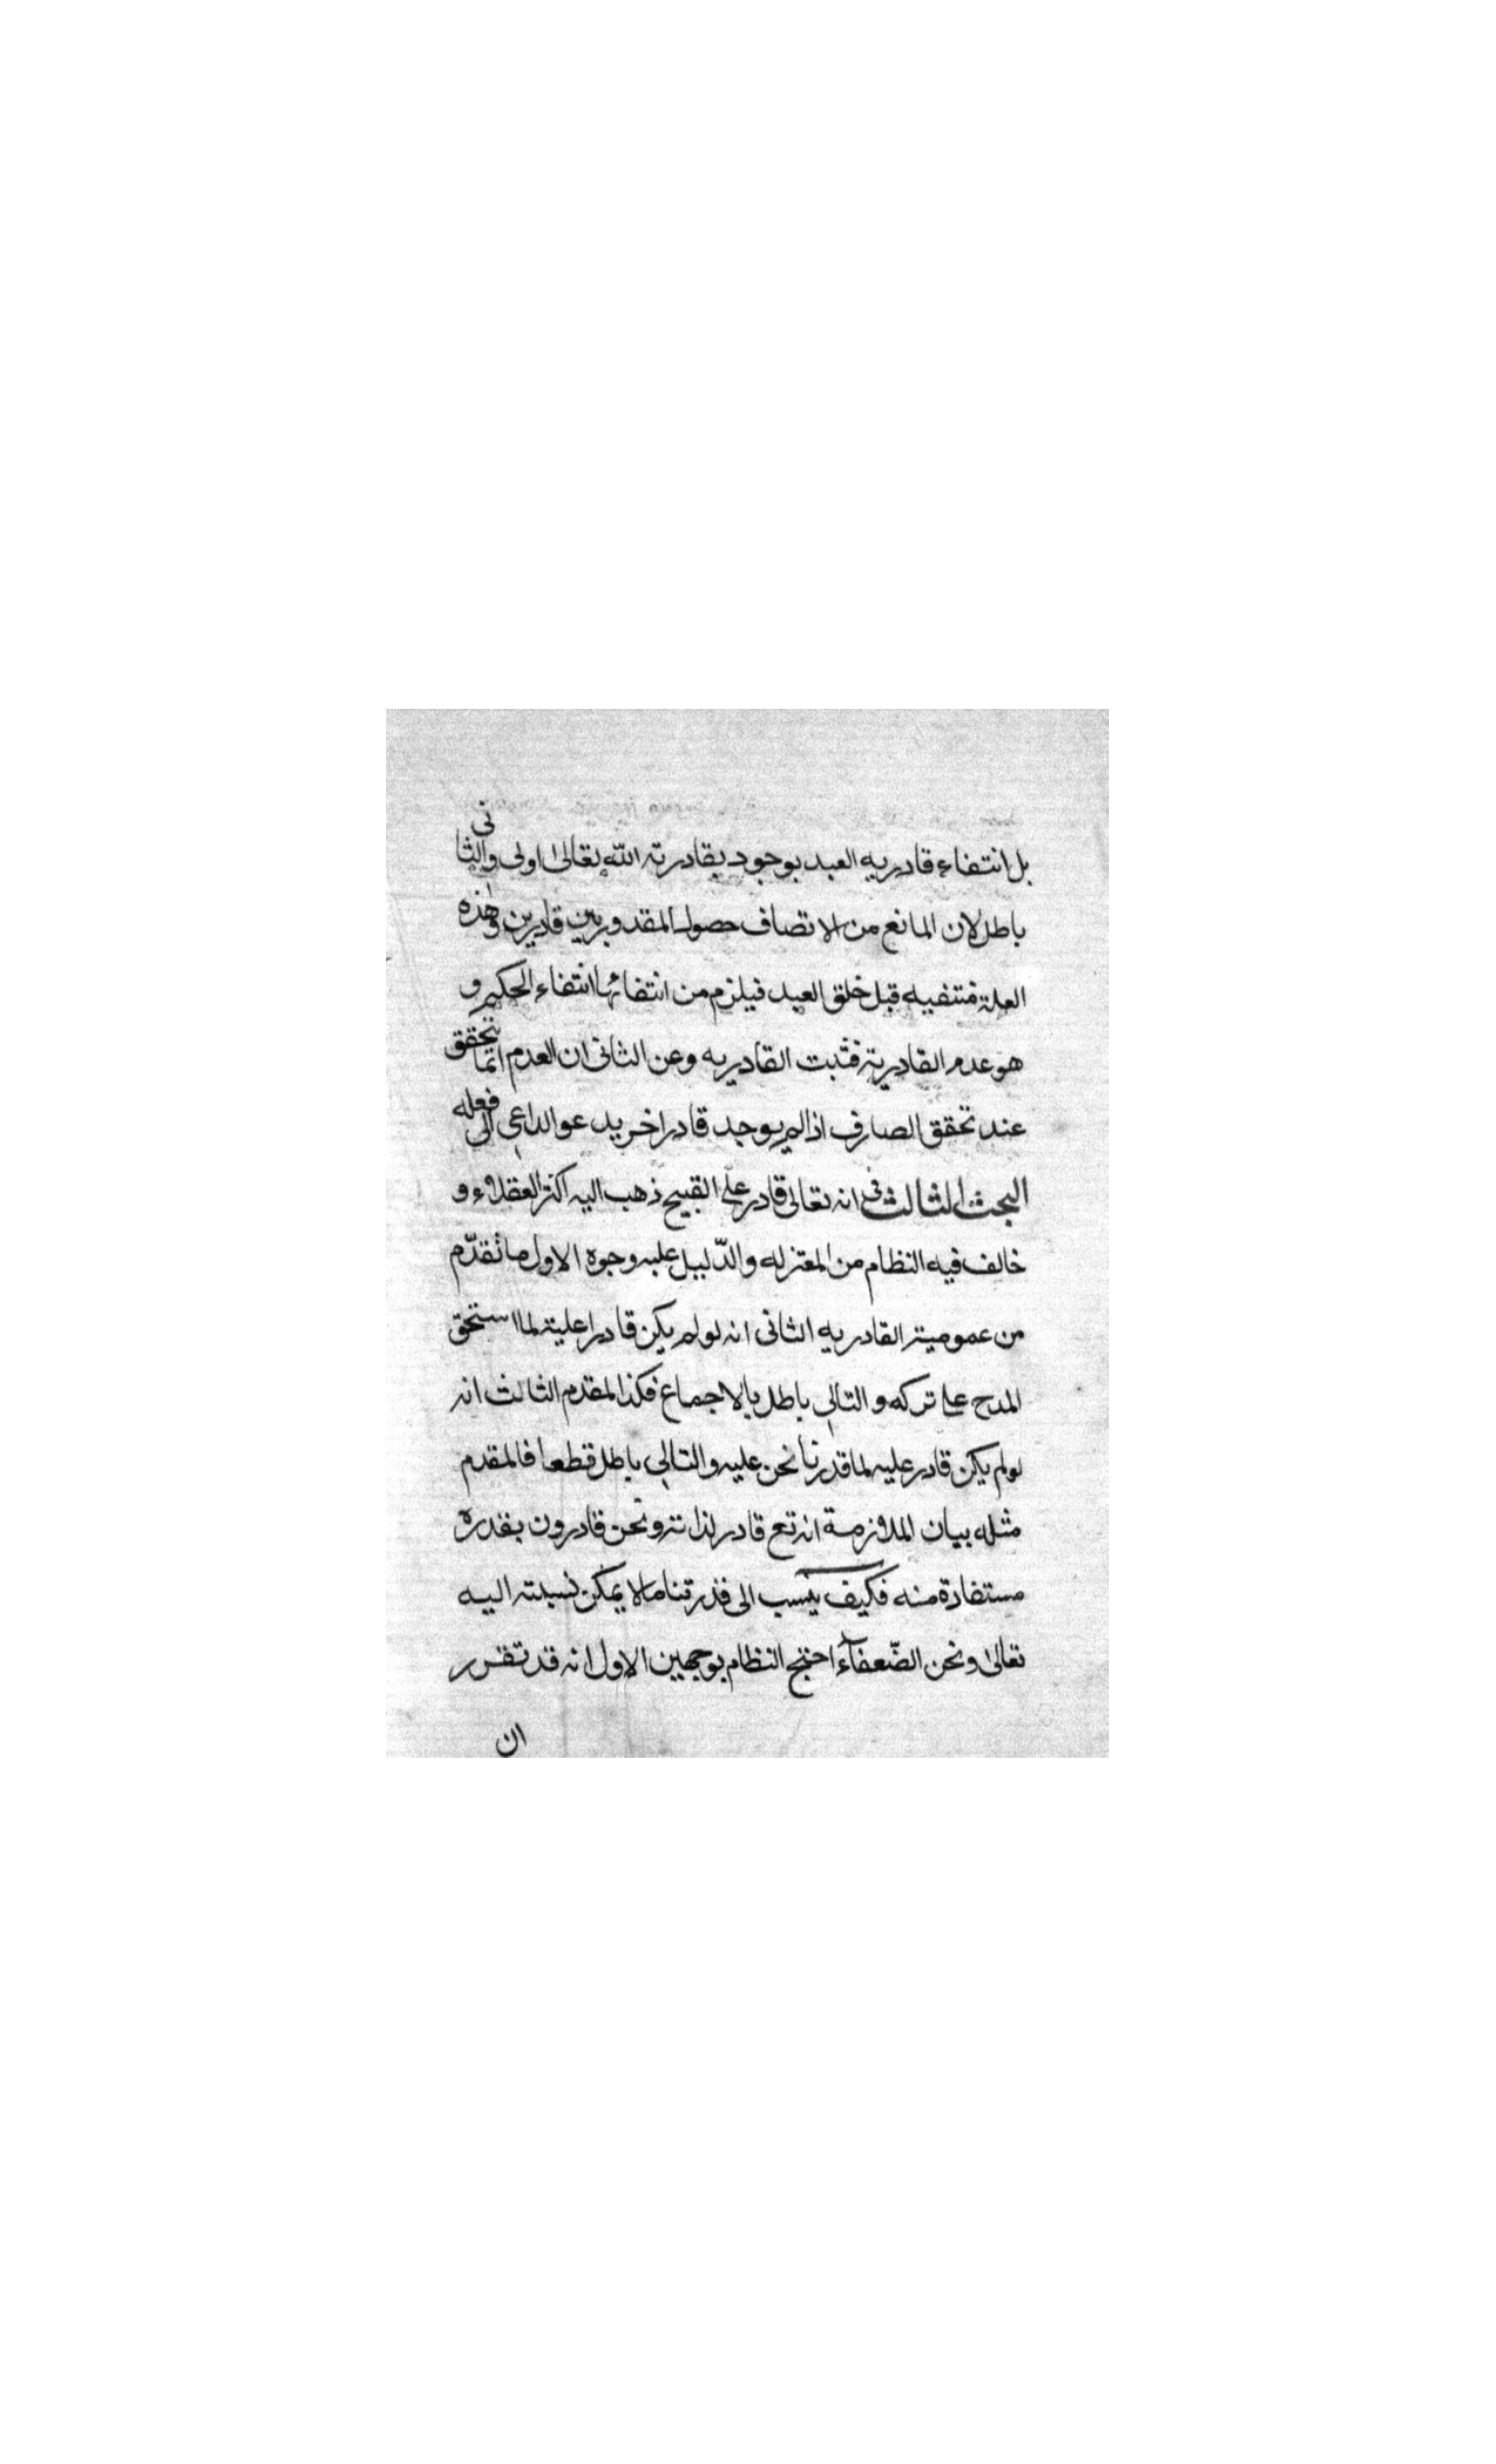 بل انتفاء قادريه العبد بوجود بقادرية الله تعالى اولى والثانى
باطل لان المانع من الاتصاف حصول المقدور بين قادرين وهذه
العلة منتفيه قبل خلق العبد فيلزم من انتفائها انتفاء الحكم و
هو عدم القادرية فثبت القادريه وعن الثانى ان العدم انما يتحقق
عند تحقق الصارف اذا لم يوجد قادر اخر يدعو الداعى الى فعله
البحث الثالث فى انه تعالى قادر على القبيح ذهب اليه اكثر العقلاء و
خالف فيه النظام من المعتزله والدّليل عليه وجوه الاول ما تقدّم
من عمومية القادريه الثانى انه لو لم يكن قادرا عليه لما استحق
المدح على تركه والتالى باطل بالاجماع فكذا المقدم الثالث انه
لو لم يكن قادر عليه لما قدرنا نحن عليه والتالى باطل قطعا فالمقدم
مثله بيان الملازمة انه تع قادر لذاته ونحن قادرون بقدرة
مستفادة منه فكيف ينسب الى قدرتنا ما لا يمكن نسبته اليه
تعالى ونحن الضّعفآء احتج النظام بوجهين الاول انه قد تقرر
ان